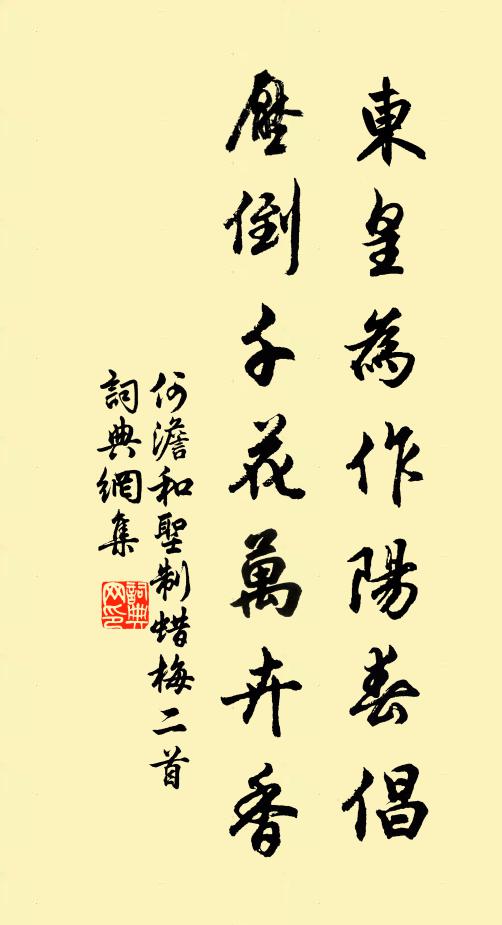 東皇為作陽春倡
壓倒千花萬卉香
何澹和聖制蜡梅二首
詞典網集
詞典網印